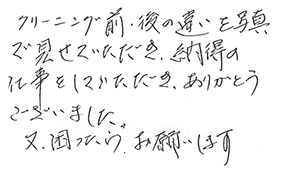 クリーニング前・後の違いを写真
で見せていただき、納得の
仕事をしていただき、ありがとう
ございました。
又、困ったら、お願いします